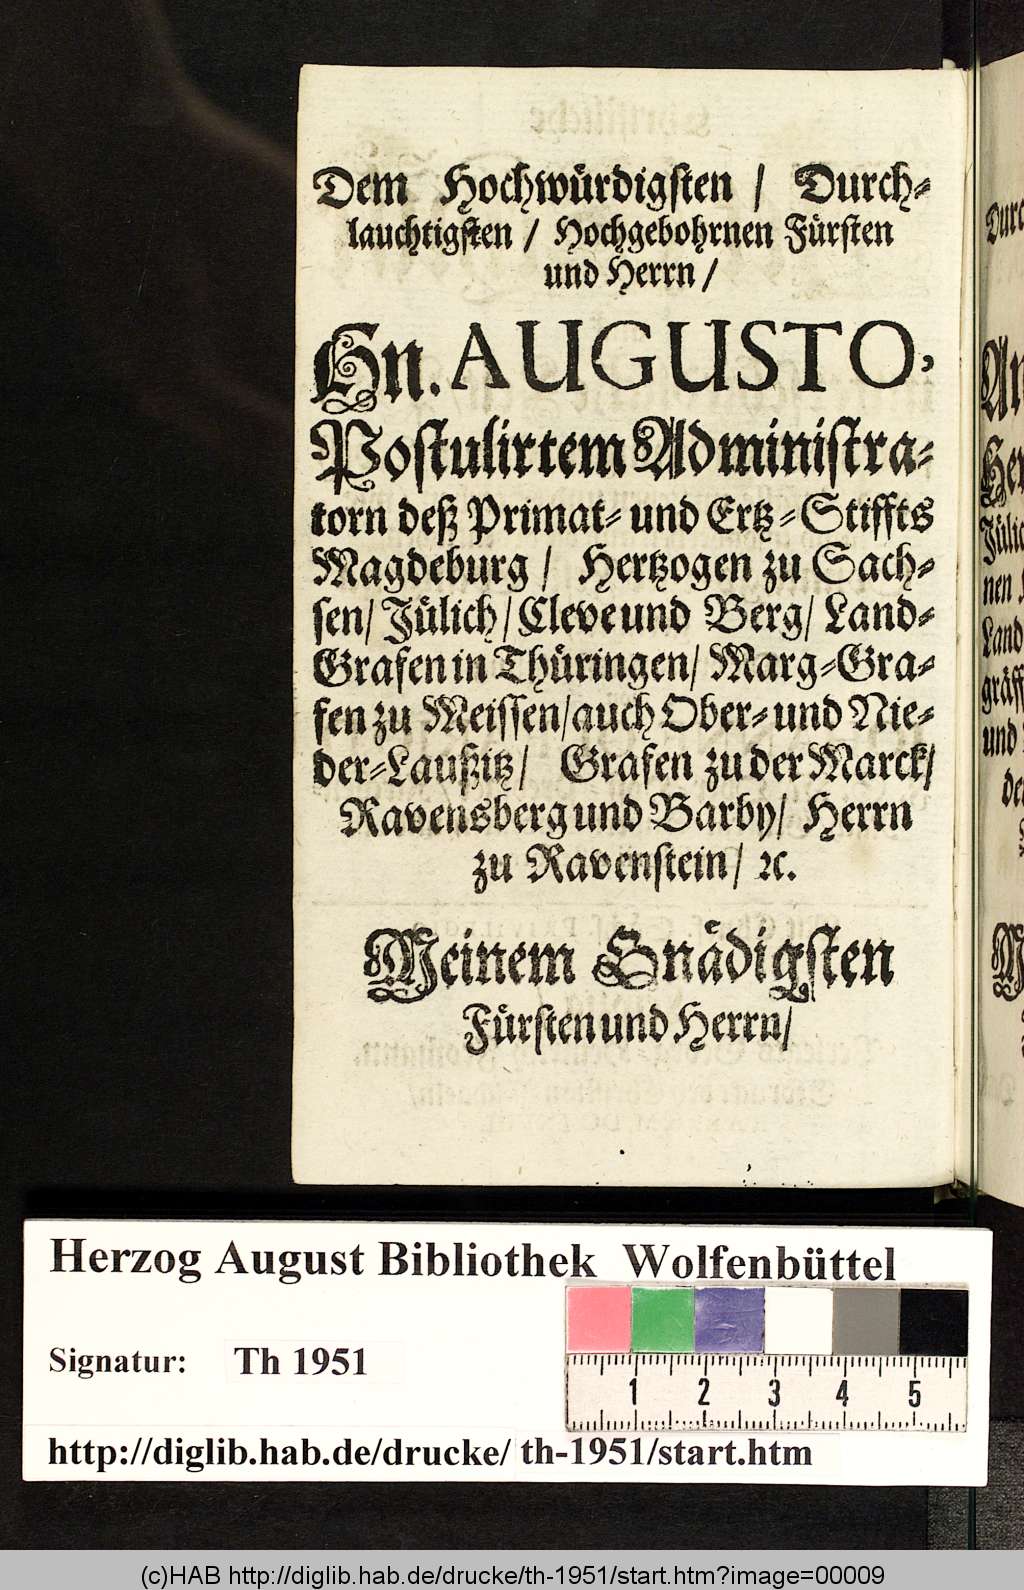 Dem Hochwürdigsten / Durch-
lauchtigsten / Hochgebohrnen Fürsten
und Herrn /
Hn. AUGUSTO,
Postulirtem Administra-
torn deß Primat- und Ertz-Stiffts
Magdeburg / Hertzogen zu Sach-
sen / Jülich / Cleve und Berg / Land-
Grafen in Thüringen / Marg-Gra-
fen zu Meissen / auch Ober- und Nie-
der-Laußitz / Grafen zu der Marck /
Ravensberg und Barby / Herrn
zu Ravenstein / ꝛc.
Meinem Gnädigsten
Fürsten und Herrn /
Herzog August Bibliothek Wolfenbüttel
Signatur: Th 1951
1 2 3 4 5
http://diglib.hab.de/drucke/ th-1951/start.htm
(c)HAB http://diglib.hab.de/drucke/th-1951/start.htm?image=00009